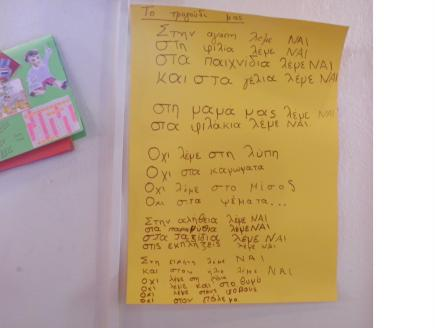 Το τραγούδι μας
Στην αγαπη λεμε ΝΑΙ
Στη φιλία λεμε ΝΑΙ
στα παιχνίδια λεμε ΝΑΙ
και στα γέλια λέμε ΝΑΙ
στη μαμα μας λεμε ΝΑΙ
στα φιλάκια λεμε ΝΑΙ
Οχι λέμε στη λύπη
Οχι στα
Οχι λέμε στο μίσος
Οχι στα ψέματα...
Στην αλήθεια λεμε ΝΑΙ
στα παραμύθια λεμε ΝΑΙ
στα ταξίδια λεμε ΝΑΙ
στις εκπλήξεις λεμε ΝΑΙ
Στη ειρήνη λεμε ΝΑΙ
και στον ηλιο λεμε ΝΑΙ
οχι λεμε στη
οχι λεμε και στο θυμο
οχι λεμε στους φοβους
οχι στον πόλεμο